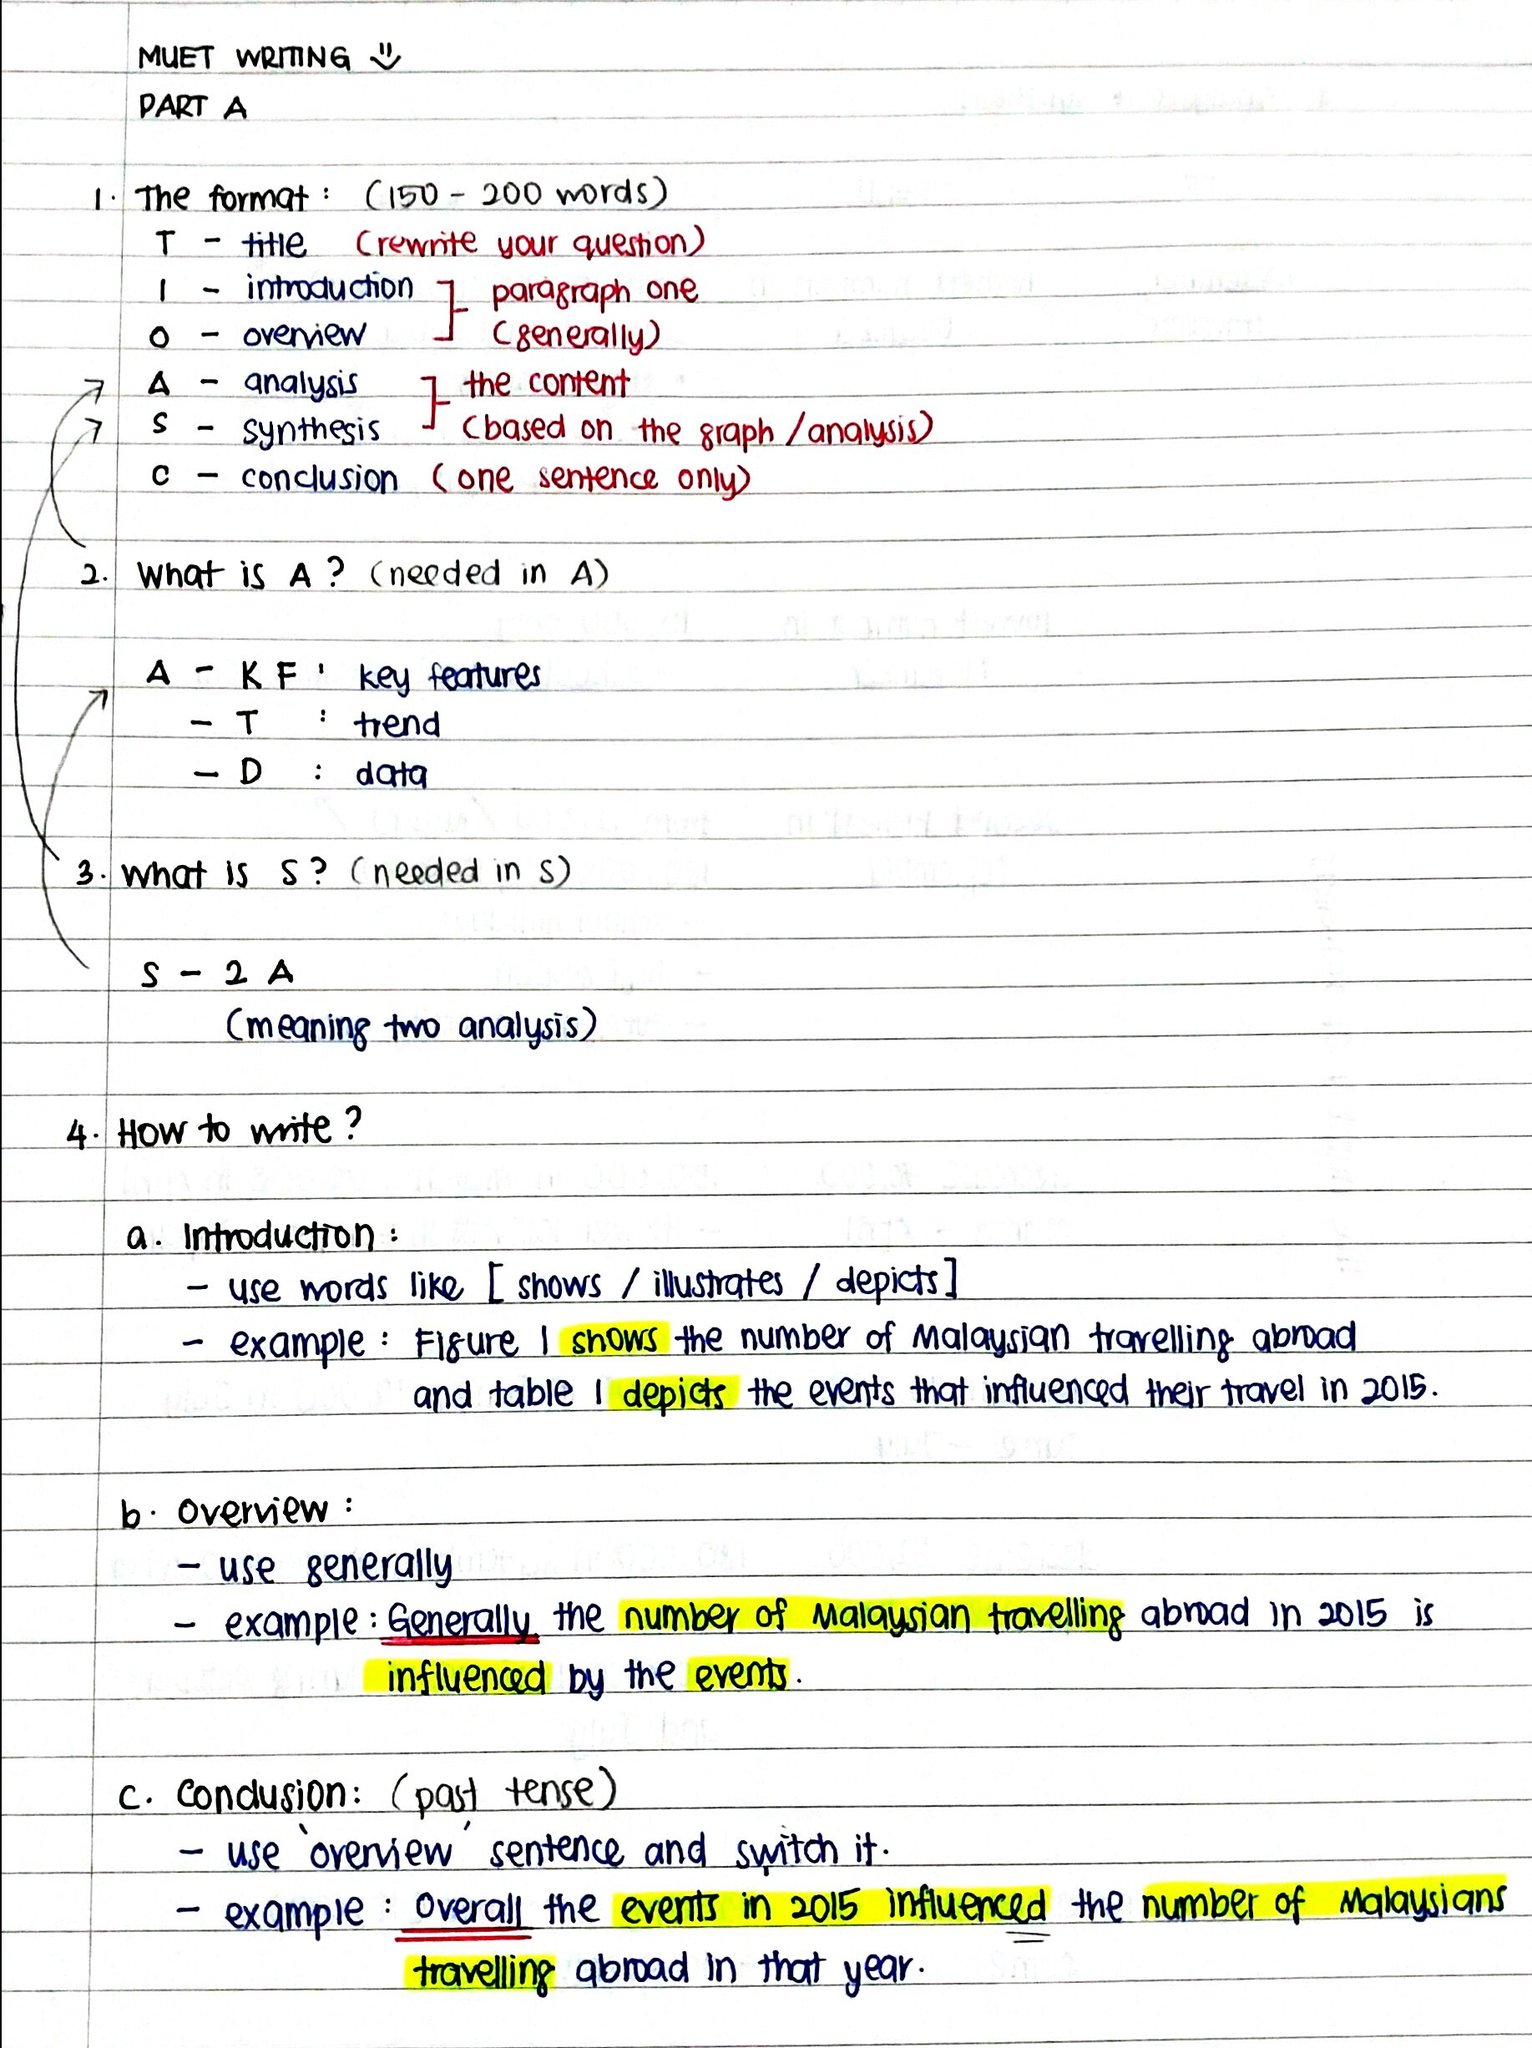 MUET WRITING
PART A
1. The format : (150 - 200 words)
T - title (rewrite your question)
I - introduction ] paragraph one
O - overview (generally)
A - analysis ] the content
S - synthesis (based on the graph / analysis)
C - conclusion (one sentence only)
2. What is A? (needed in A)
A - KF : key features
- T : trend
- D : data
3. What is S? (needed in S)
S - 2 A
(meaning two analysis)
4. How to write?
a. Introduction :
- use words like [ shows / illustrates / depicts ]
- example : Figure 1 shows the number of Malaysian travelling abroad
and table 1 depicts the events that influenced their travel in 2015.
b. Overview :
- use generally
- example : Generally the number of Malaysian travelling abroad in 2015 is
influenced by the events.
c. Conclusion : (past tense)
- use 'overview' sentence and switch it.
- example : Overall the events in 2015 influenced the number of Malaysians
travelling abroad in that year.